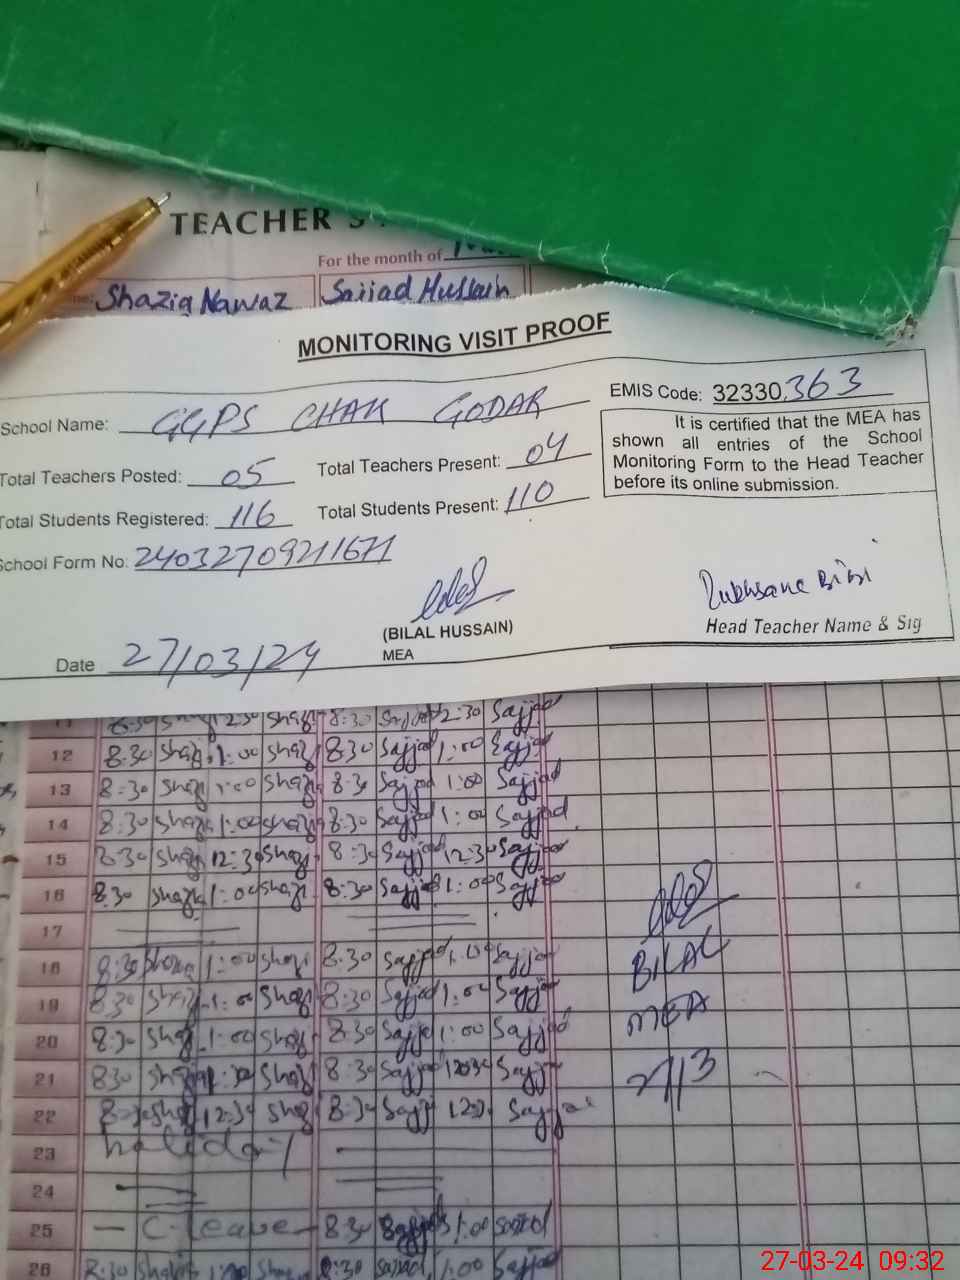 TEACHER S
For the month of
Shazia Nawaz Sajjad Hussain
MONITORING VISIT PROOF
School Name: GGPS CHAK GODAR
EMIS Code: 32330363
It is certified that the MEA has shown all entries of the School Monitoring Form to the Head Teacher before its online submission.
Total Teachers Posted: 05 Total Teachers Present: 04
Total Students Registered: 116 Total Students Present: 110
School Form No: 24032709211671
(BILAL HUSSAIN)
MEA
Rukhsana Bibi
Head Teacher Name & Sig
Date 27/03/24
11 8:30 Shaz 12:30 Shaz 8:30 Sajjad 12:30 Sajjad
12 8:30 Shaz 1:00 Shaz 8:30 Sajjad 1:00 Sajjad
13 8:30 Shaz 1:00 Shaz 8:30 Sajjad 1:00 Sajjad
14 8:30 Shaz 1:00 Shaz 8:30 Sajjad 1:00 Sajjad
15 8:30 Shaz 12:30 Shaz 8:30 Sajjad 12:30 Sajjad
16 8:30 Shaz 1:00 Shaz 8:30 Sajjad 1:00 Sajjad
17
18 8:30 Shaz 1:00 Shaz 8:30 Sajjad 1:00 Sajjad
BILAL
19 8:30 Shaz 1:00 Shaz 8:30 Sajjad 1:00 Sajjad
MEA
20 8:30 Shaz 1:00 Shaz 8:30 Sajjad 1:00 Sajjad
21 830 Shaz Shaz 8:30 Sajjad Sajjad
27/3
22 8:30 Shaz 12:30 Shaz 8:30 Sajj 12:30 Sajjad
23 holiday
24
25 — C-leave — 8:30 Sajjad 1:00 Sajjad
26 8:30 1:00 8:30 Sajjad 1:00 Sajjad
27-03-24 09:32